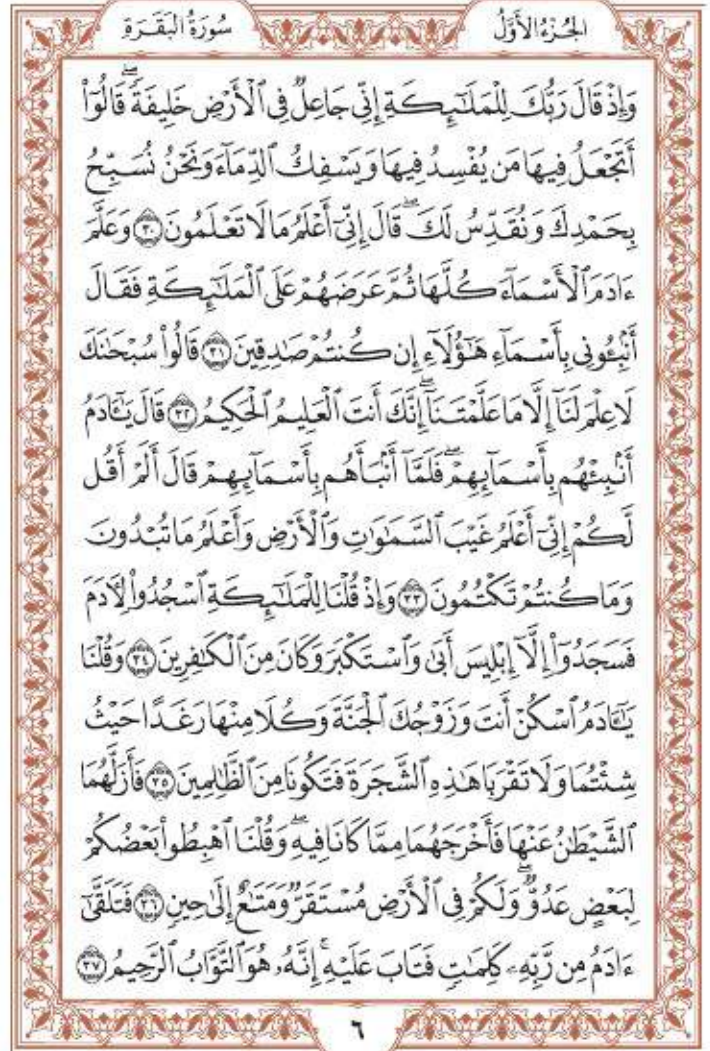 سُورَةُ البَقَرَةِ الجُزْءُ الأَوَّلُ
وَإِذْ قَالَ رَبُّكَ لِلْمَلَٰٓئِكَةِ إِنِّي جَاعِلٌ فِي ٱلْأَرْضِ خَلِيفَةًۖ قَالُوٓاْ
أَتَجْعَلُ فِيهَا مَن يُفْسِدُ فِيهَا وَيَسْفِكُ ٱلدِّمَآءَ وَنَحْنُ نُسَبِّحُ
بِحَمْدِكَ وَنُقَدِّسُ لَكَۖ قَالَ إِنِّيٓ أَعْلَمُ مَا لَا تَعْلَمُونَ ٣٠ وَعَلَّمَ
ءَادَمَ ٱلْأَسْمَآءَ كُلَّهَا ثُمَّ عَرَضَهُمْ عَلَى ٱلْمَلَٰٓئِكَةِ فَقَالَ
أَنۢبِـُٔونِي بِأَسْمَآءِ هَٰٓؤُلَآءِ إِن كُنتُمْ صَٰدِقِينَ ٣١ قَالُواْ سُبْحَٰنَكَ
لَا عِلْمَ لَنَآ إِلَّا مَا عَلَّمْتَنَآۖ إِنَّكَ أَنتَ ٱلْعَلِيمُ ٱلْحَكِيمُ ٣٢ قَالَ يَٰٓـَٔادَمُ
أَنۢبِئْهُم بِأَسْمَآئِهِمْۖ فَلَمَّآ أَنۢبَأَهُم بِأَسْمَآئِهِمْ قَالَ أَلَمْ أَقُل
لَّكُمْ إِنِّيٓ أَعْلَمُ غَيْبَ ٱلسَّمَٰوَٰتِ وَٱلْأَرْضِ وَأَعْلَمُ مَا تُبْدُونَ
وَمَا كُنتُمْ تَكْتُمُونَ ٣٣ وَإِذْ قُلْنَا لِلْمَلَٰٓئِكَةِ ٱسْجُدُواْ لِأَدَمَ
فَسَجَدُوٓاْ إِلَّآ إِبْلِيسَ أَبَىٰ وَٱسْتَكْبَرَ وَكَانَ مِنَ ٱلْكَٰفِرِينَ ٣٤ وَقُلْنَا
يَٰٓـَٔادَمُ ٱسْكُنْ أَنتَ وَزَوْجُكَ ٱلْجَنَّةَ وَكُلَا مِنْهَا رَغَدًا حَيْثُ
شِئْتُمَا وَلَا تَقْرَبَا هَٰذِهِ ٱلشَّجَرَةَ فَتَكُونَا مِنَ ٱلظَّٰلِمِينَ ٣٥ فَأَزَلَّهُمَا
ٱلشَّيْطَٰنُ عَنْهَا فَأَخْرَجَهُمَا مِمَّا كَانَا فِيهِۖ وَقُلْنَا ٱهْبِطُواْ بَعْضُكُمْ
لِبَعْضٍ عَدُوٌّۖ وَلَكُمْ فِي ٱلْأَرْضِ مُسْتَقَرٌّ وَمَتَٰعٌ إِلَىٰ حِينٍ ٣٦ فَتَلَقَّىٰٓ
ءَادَمُ مِن رَّبِّهِۦ كَلِمَٰتٍ فَتَابَ عَلَيْهِۚ إِنَّهُۥ هُوَ ٱلتَّوَّابُ ٱلرَّحِيمُ ٣٧
٦